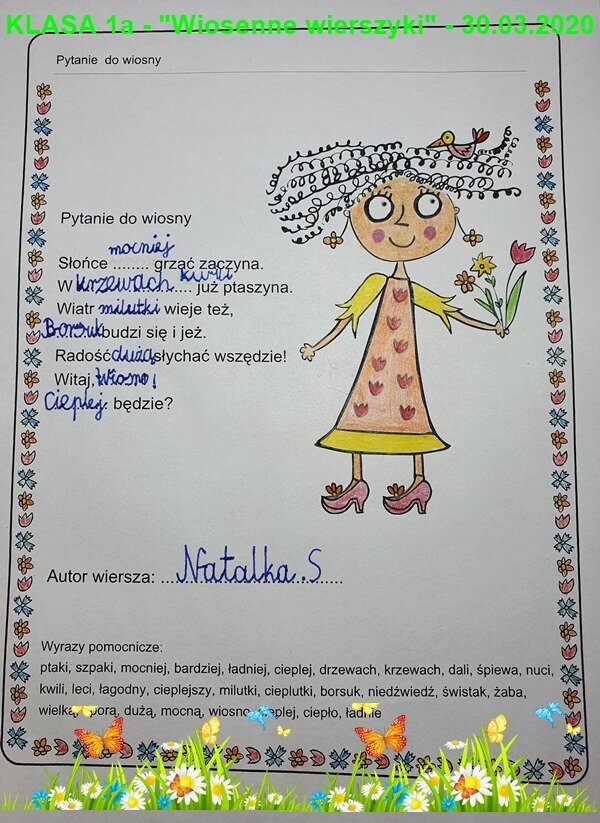 KLASA 1a - "Wiosenne wierszyki" - 30.03.2020
Pytanie do wiosny
Pytanie do wiosny
Słońce mocniej ........ grzać zaczyna.
W krzewach kwili .... już ptaszyna.
Wiatr milutki wieje też,
Borsuk budzi się i jeż.
Radość dużą słychać wszędzie!
Witaj, wiosno!
Cieplej. będzie?
Autor wiersza: ... Natalka..S ....
Wyrazy pomocnicze:
ptaki, szpaki, mocniej, bardziej, ładniej, cieplej, drzewach, krzewach, dali, śpiewa, nuci,
kwili, leci, łagodny, cieplejszy, milutki, cieplutki, borsuk, niedźwiedź, świstak, żaba,
wielką, sporą, dużą, mocną, wiosno, cieplej, ciepło, ładnie